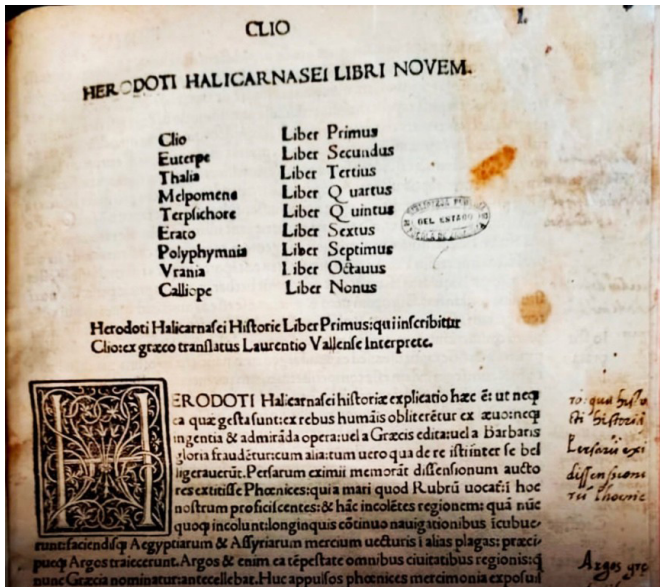 CLIO
1.
HERODOTI HALICARNASEI LIBRI NOVEM.
Clio Liber Primus
Euterpe Liber Secundus
Thalia Liber Tertius
Melpomene Liber Quartus
Terpsichore Liber Quintus
Erato Liber Sextus
Polyphymnia Liber Septimus
Vrania Liber Octauus
Calliope Liber Nonus
DEL ESTADO
Herodoti Halicarnasei Historie Liber Primus:qui inscribitur
Clio:ex græco translatus Laurentio Vallense Interprete.
HERODOTI Halicarnasei historiæ explicatio hæc ē: ut neqȝ
ea quæ gesta sunt:ex rebus humāis obliterētur ex æuo:neqȝ
ingentia & admirāda opera:uel a Græcis edita:uel a Barbaris
gloria fraudētur:cum alia:tum uero qua de re isti inter se bel
ligerauerūt. Persarum eximii memorāt dissensionum aucto
res extitisse Phœnices:qui a mari quod Rubrū uocat hoc
nostrum proficiscentes:& hāc incolētes regionem: quā nūc
quoqȝ incolunt:longinquis cōtinuo nauigationibus icubue
runt:faciendisqȝ Aegyptiarum & Assyriarum mercium uecturis i alias plagas: præci
pueqȝ Argos traiecerunt. Argos & enim ea tēpestate omnibus ciuitatibus regionis:q̄
nunc Græcia nominatur:antecellebat. Huc appulsos phœnices mercimonia exposui
historia
Persarū exi
dissensione
Argos